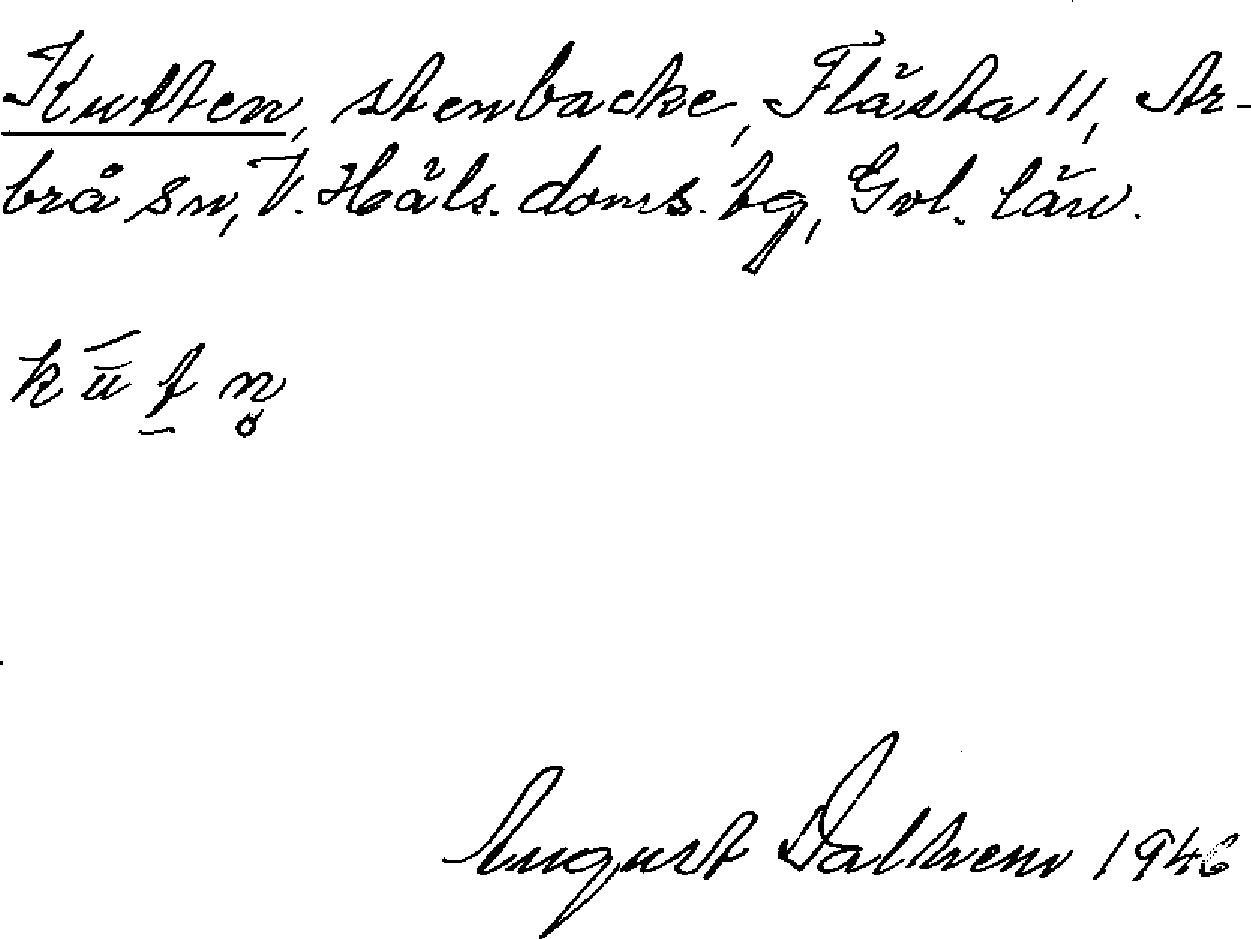 Kutten, stenbacke, Flästa 11, Ar-
brå sn, V. Häls. doms. tg, Gvl. län.
August Dalhem 1946